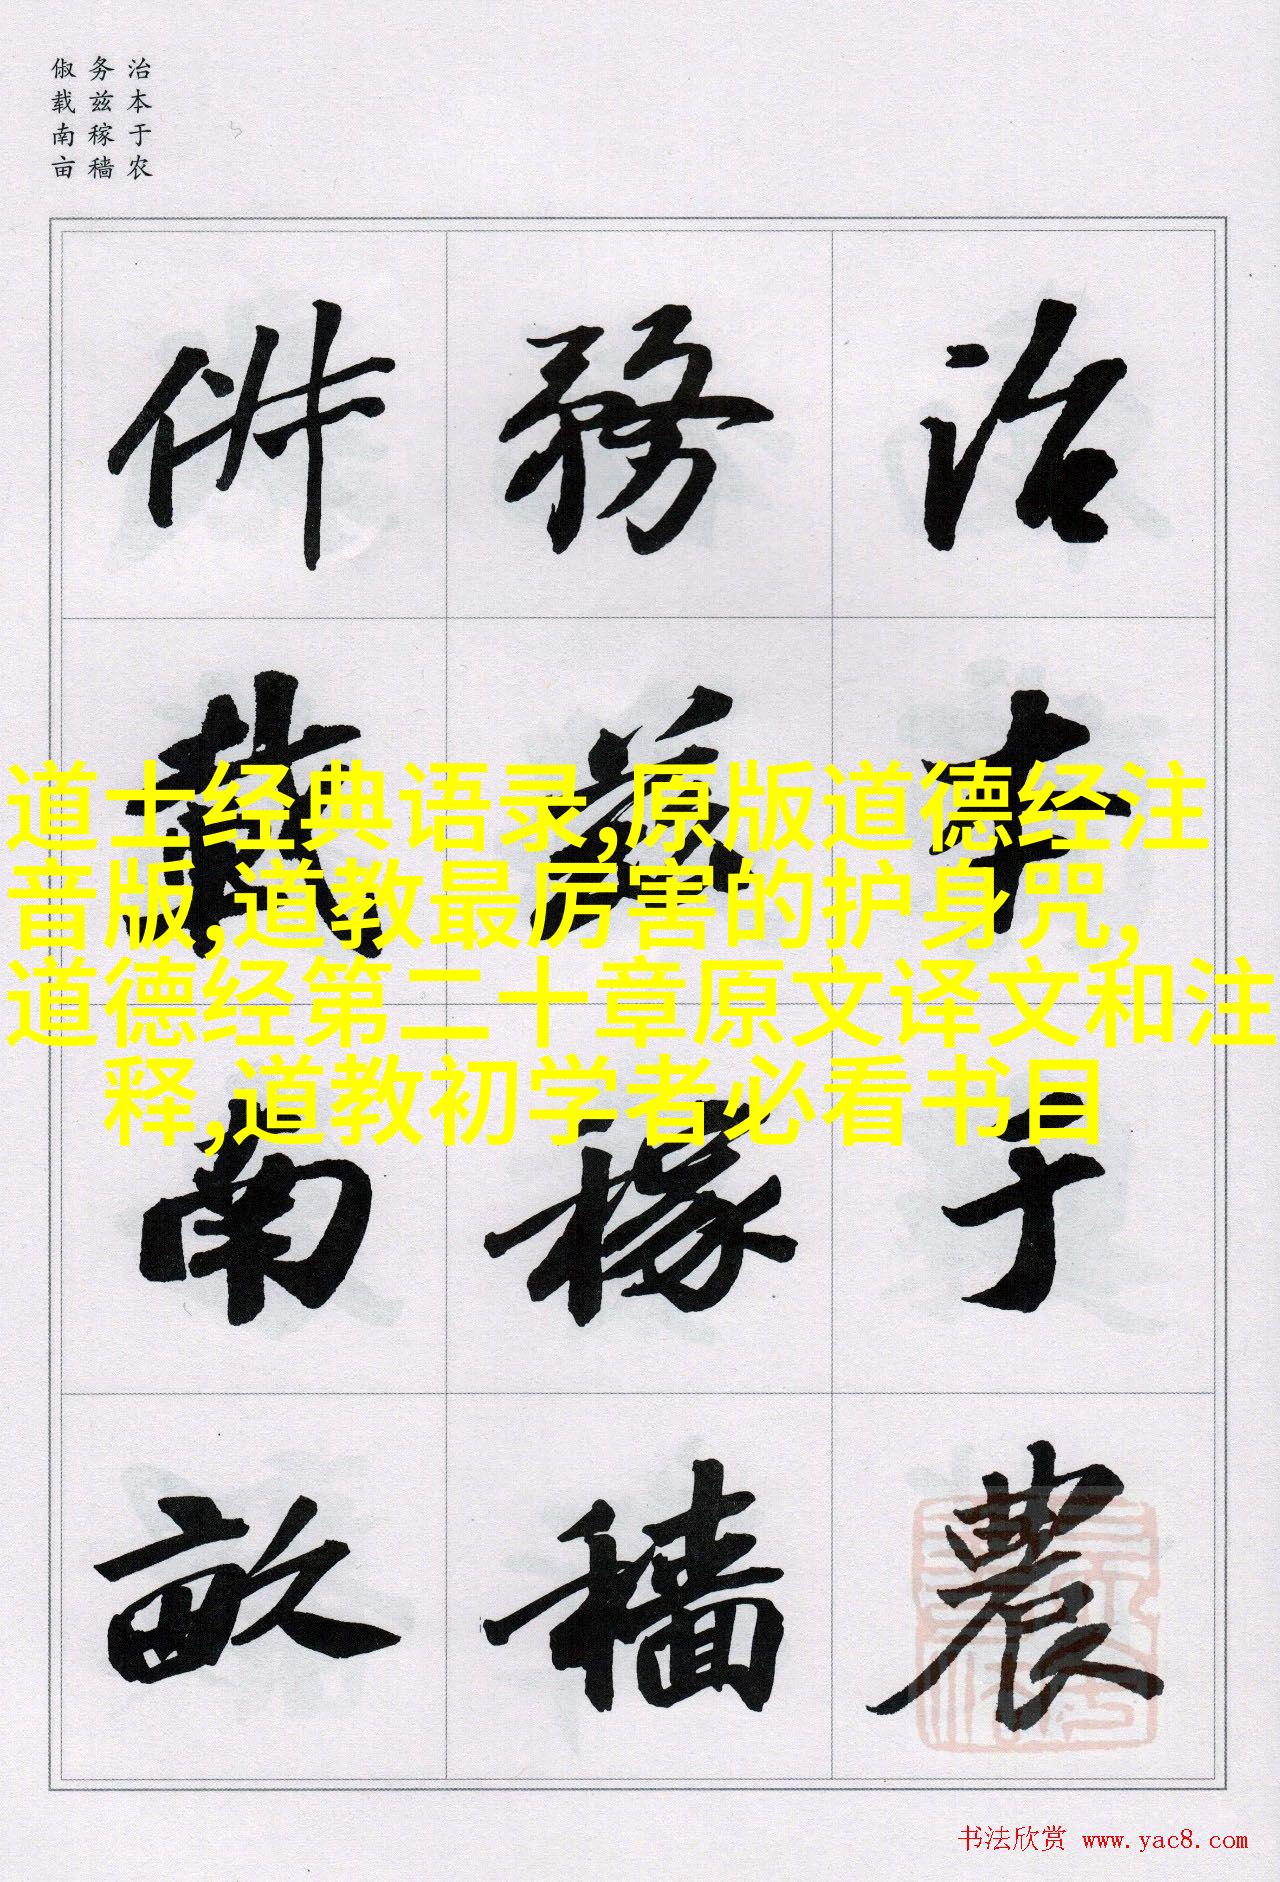 治本于农
务兹稼穑
俶载南亩
治本于農
務茲稼穡
俶載南畝
道士经典语录,原版道德经注
音版,道教最厉害的护身咒,
道德经第二十章原文译文和注
释,道教初学者必看书目
书法欣赏 www.yac8.com